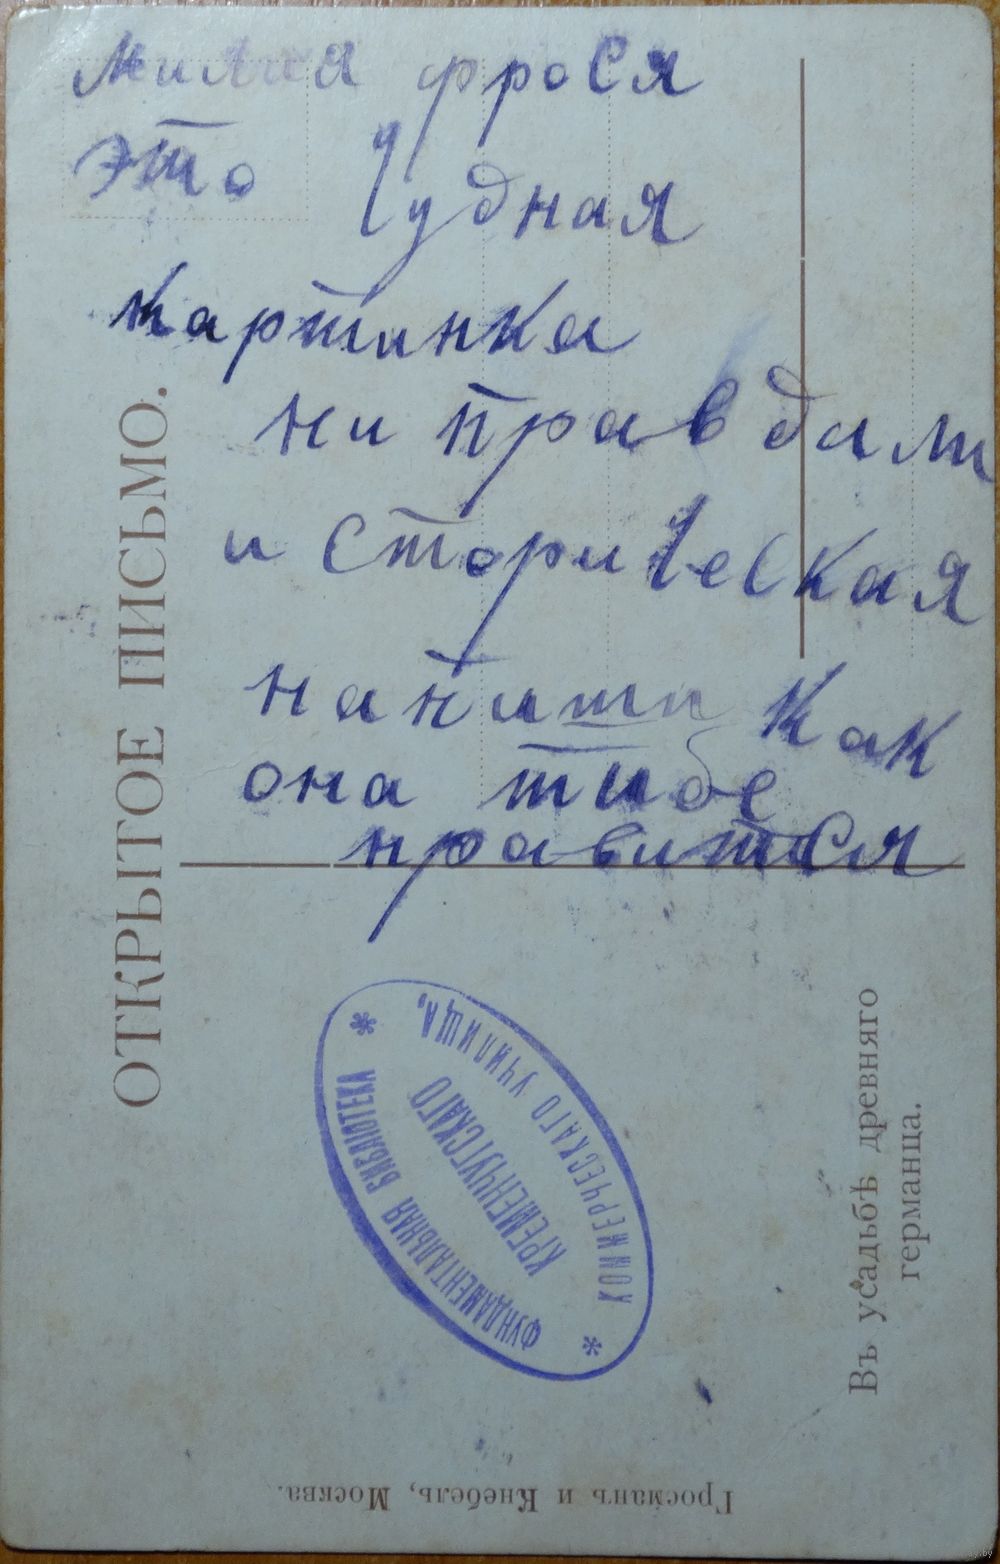 милая фрося
это чудная
картинка
ни правдали
историческая
напиши как
она тибе
нравится
ОТКРЫТОЕ ПИСЬМО.
ФУНДАМЕНТАЛЬНАЯ БИБЛІОТЕКА
КРЕМЕНЧУГСКАГО
КОММЕРЧЕСКАГО УЧИЛИЩА
Въ усадьбѣ древняго
германца.
Гросманъ и Кнебель, Москва.